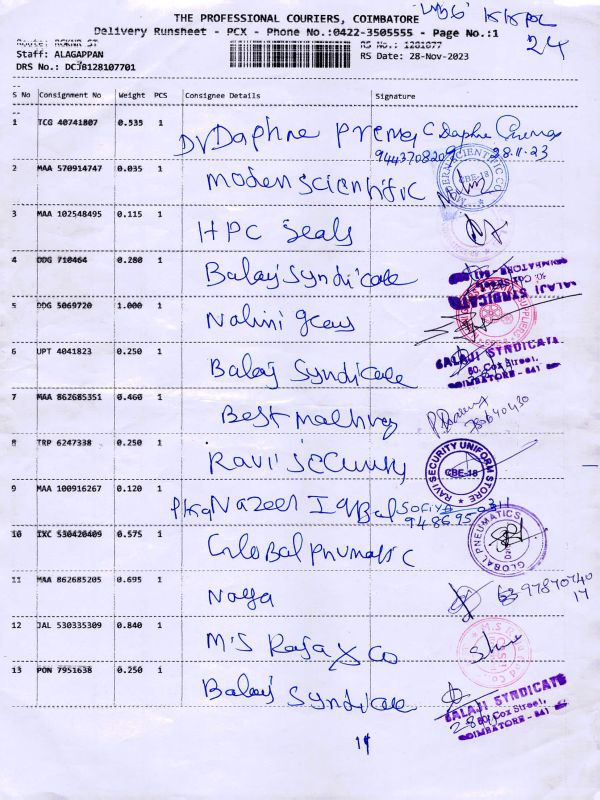 THE PROFESSIONAL COURIERS, COIMBATORE
Delivery Runsheet - PCX - Phone No.:0422-3505555 - Page No.:1
24
Staff: ALAGAPPAN
RS No.: 1281077
RS Date: 28-Nov-2023
DRS No.: DCJB128107701
S No Consignment No Weight PCS Consignee Details Signature
1 TCG 40741807 0.535 1 Dr Daphne Prema C Daphne Prema
9443708209 28.11.23
2 MAA 570914747 0.035 1 Moden Scientific
MODERN SCIENTIFIC CO CBE-18
3 MAA 102548495 0.115 1 HPC Seals
4 DDG 710464 0.280 1 Balaji Syndicate
BALAJI SYNDICATE
5 DDG 5069720 1.000 1 Nalini Gears
6 UPT 4041823 0.250 1 Balaji Syndicate
BALAJI SYNDICATE
80, Cox Street,
COIMBATORE - 641
7 MAA 862685351 0.460 1
8 TRP 6247338 0.250 1 Ravi Security
RAVI SECURITY UNIFORM STORE CBE-18
9 MAA 100916267 0.120 1 Nazeer Iqbal Sofiya
10 IXC 530420409 0.575 1 Global Pnumatic
GLOBAL PNEUMATICS
11 MAA 862685205 0.695 1
12 JAL 530335309 0.840 1 M'S Raja & Co
13 PON 7951638 0.250 1 Balaji Syndicate
BALAJI SYNDICATE
80, Cox Street,
COIMBATORE - 641